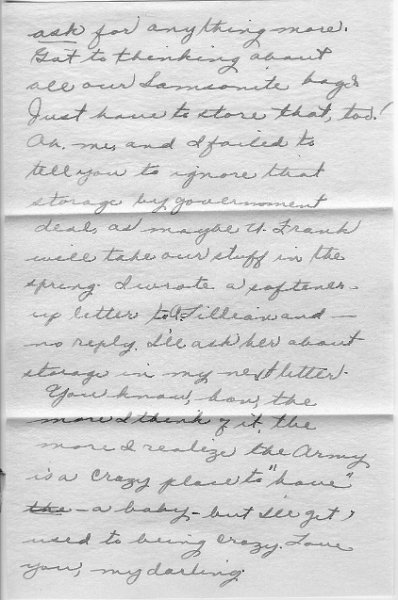 ask for anything more.
Got to thinking about
all our Samsonite bags
Just have to store that, too!
Oh, me, and I failed to
tell you to ignore that
storage by government
deal, as maybe U. Frank
will take our stuff in the
spring. I wrote a softener-
up letter to A. Lillian and —
no reply. I'll ask her about
storage in my next letter.
You know, hon, the
more I think of it, the
more I realize the Army
is a crazy place to "have"
the - a baby - but I'll get
used to being crazy. Love
you, my darling.